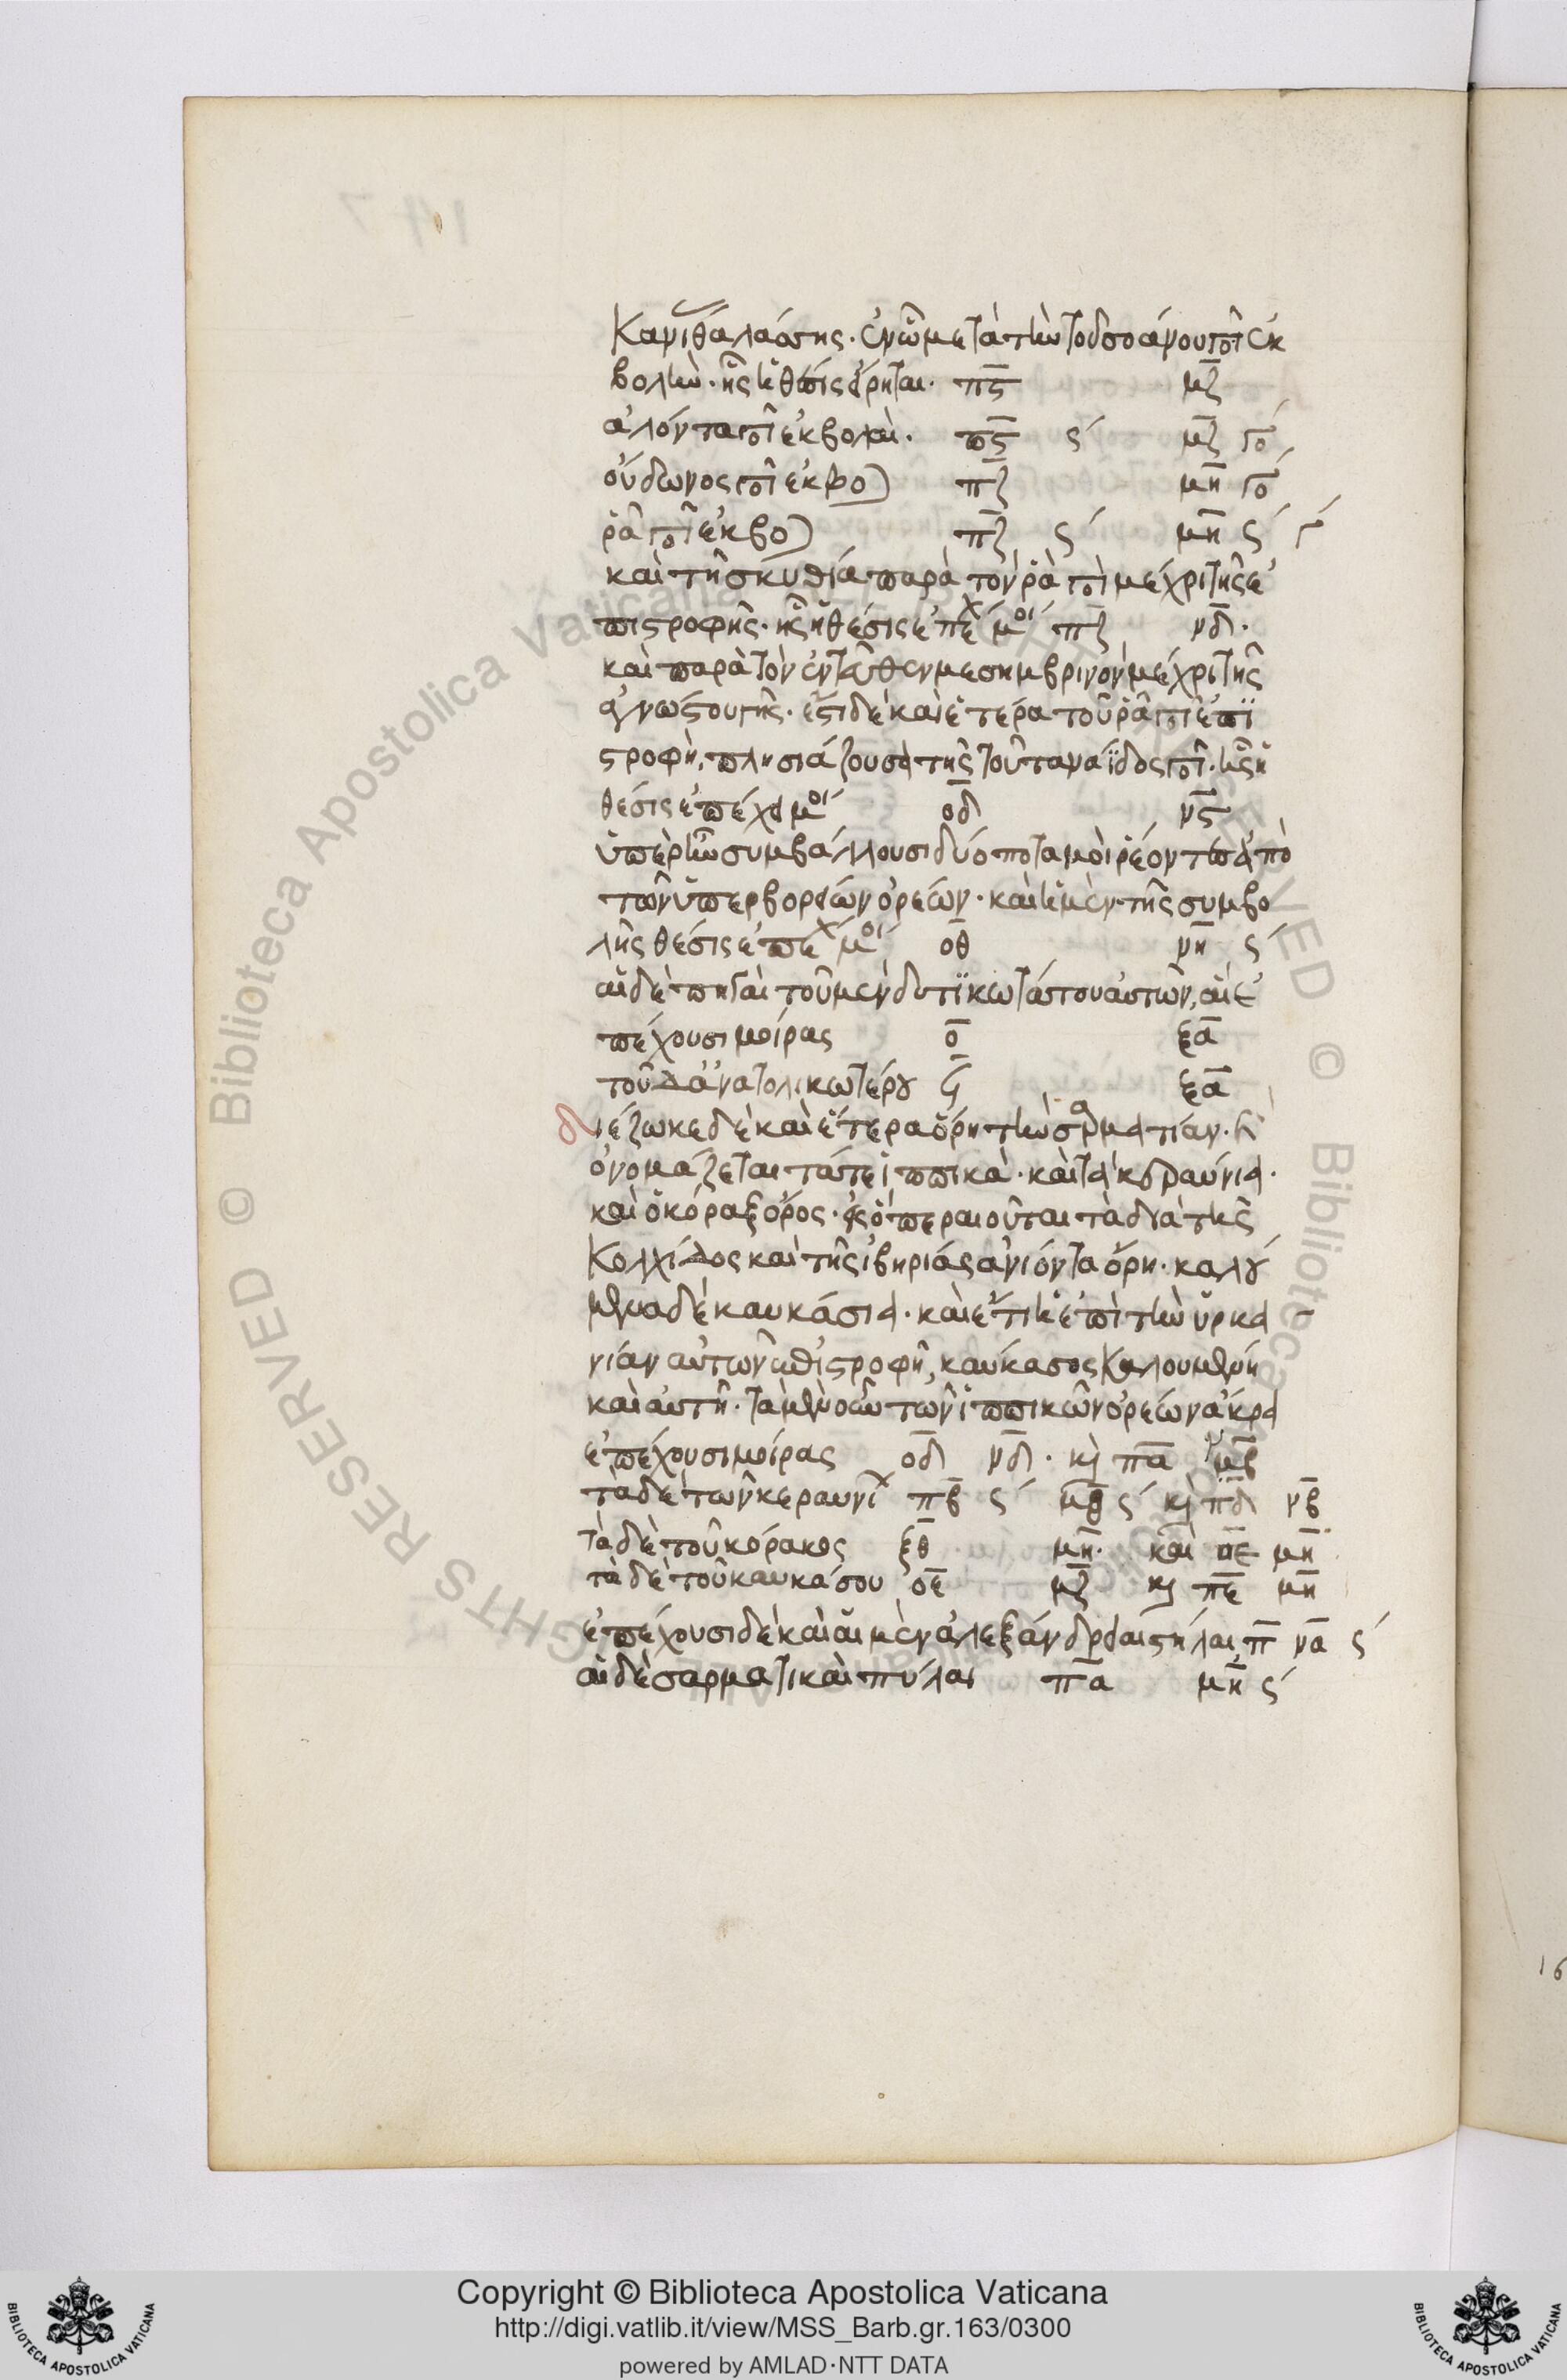 Κανίθαλάσσης. ἐν ᾧ μετὰ τὴν τοῦ σοάνου ποτ ἐκ
βολὴν. ἧς ἡ θέσις εἴρηται. πϛ μζ
ἀλόντα ποτ ἐκβολαὶ. πϛ ϛ´ μζ γο´
οὔδωνος ποτ ἐκβο) πζ μη γο´
ῥᾶ ποτ ἐκβο) πζ ϛ´ μη ϛ´ γ´
καὶ τῇ σκυθία παρὰ τὸν ῥᾶ ποτ μέχρι τῆς ἐ
πιστροφῆς. ἧς ἡ θέσις ἐπέχ μοί πζ νδ.
καὶ παρὰ τὸν ἐντεῦθεν μεσημβρινὸν μέχρι τῆς
ἀγνώστου γῆς. ἔστι δὲ καὶ ἑτέρα τοῦ ῥᾶ ποτ ἐπι
στροφὴ, πλησιάζουσα τῆς τοῦ ταναΐδος ποτ. ἧς ἡ
θέσις ἐπέχει μοί οδ νϛ
ὑπὲρ ἣν συμβάλλουσι δύο ποταμοὶ ῥέοντες ἀπὸ
τῶν ὑπερβορείων ὀρέων. καὶ ἡ μὲν τῆς συμβο
λῆς θέσις ἐπέχ μοί οθ νη ϛ´
αἱ δὲ πηγαὶ τοῦ μὲν δυτϊκωτάτου αὐτῶν, αἱ ἐ
πέχουσι μοίρας ο ξα
τοῦ δ' ἀνατολικωτέρου ϟ ξα
διέζωκε δὲ καὶ ἕτερα ὄρη τὴν σαρματίαν. ὧν
ὀνομάζεται τάτε ἱππικὰ. καὶ τὰ κεραύνια.
καὶ ὁ κόραξ ὄρος. εἰς ὃ περαιοῦται τὰ διὰ τῆς
Κολχίδος καὶ τῆς ἰβηρίας ἀνιόντα ὄρη. καλού
μενα δὲ καυκάσια. καὶ ἔτι ἡ ἐπὶ τὴν ὑρκα
νίαν αὐτῶν ἐπιστροφῆ, καύκασος καλουμένη
καὶ αὐτῆ. τὰ μὲν οὖν τῶν ἱππικῶν ὀρέων ἄκρα
ἐπέχουσι μοίρας οδ νδ. κὶ πα νβ
τὰ δὲ τῶν κεραυνίχ πβ ϛ´ μθ ϛ´ κὶ πδ νβ
τὰ δὲ τοῦ κόρακος ξθ μη. καὶ πε μη
τὰ δὲ τοῦ καυκάσου οε μζ κὶ πε μη
ἐπέχουσι δὲ καὶ αἱ μὲν ἀλεξάνδρειαι στήλαι π να ϛ´
αἱ δὲ σαρματικαὶ πύλαι πα μη ϛ´
Copyright © Biblioteca Apostolica Vaticana
http://digi.vatlib.it/view/MSS_Barb.gr.163/0300
powered by AMLAD·NTT DATA